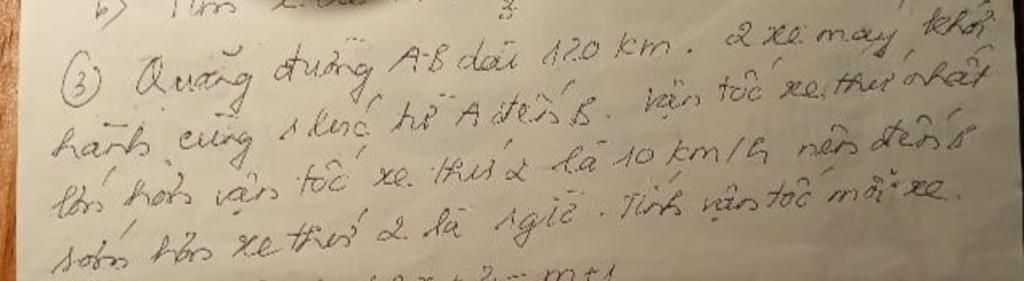 b) Tính
③ Quãng đường AB dài 120 km. 2 xe máy khởi
hành cùng 1 lúc từ A đến B. Vận tốc xe thứ nhất
lớn hơn vận tốc xe thứ 2 là 10 km/h nên đến B
sớm hơn xe thứ 2 là 1 giờ. Tính vận tốc mỗi xe.
= m+1